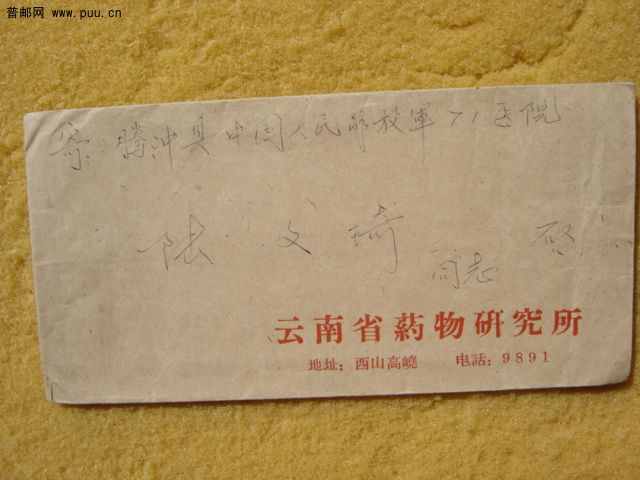 普邮网 www.puu.cn
寄: 腾冲县中国人民解放軍71医院
陆文琦
同志 启
云南省药物研究所
地址: 西山高嶢 电話: 9891